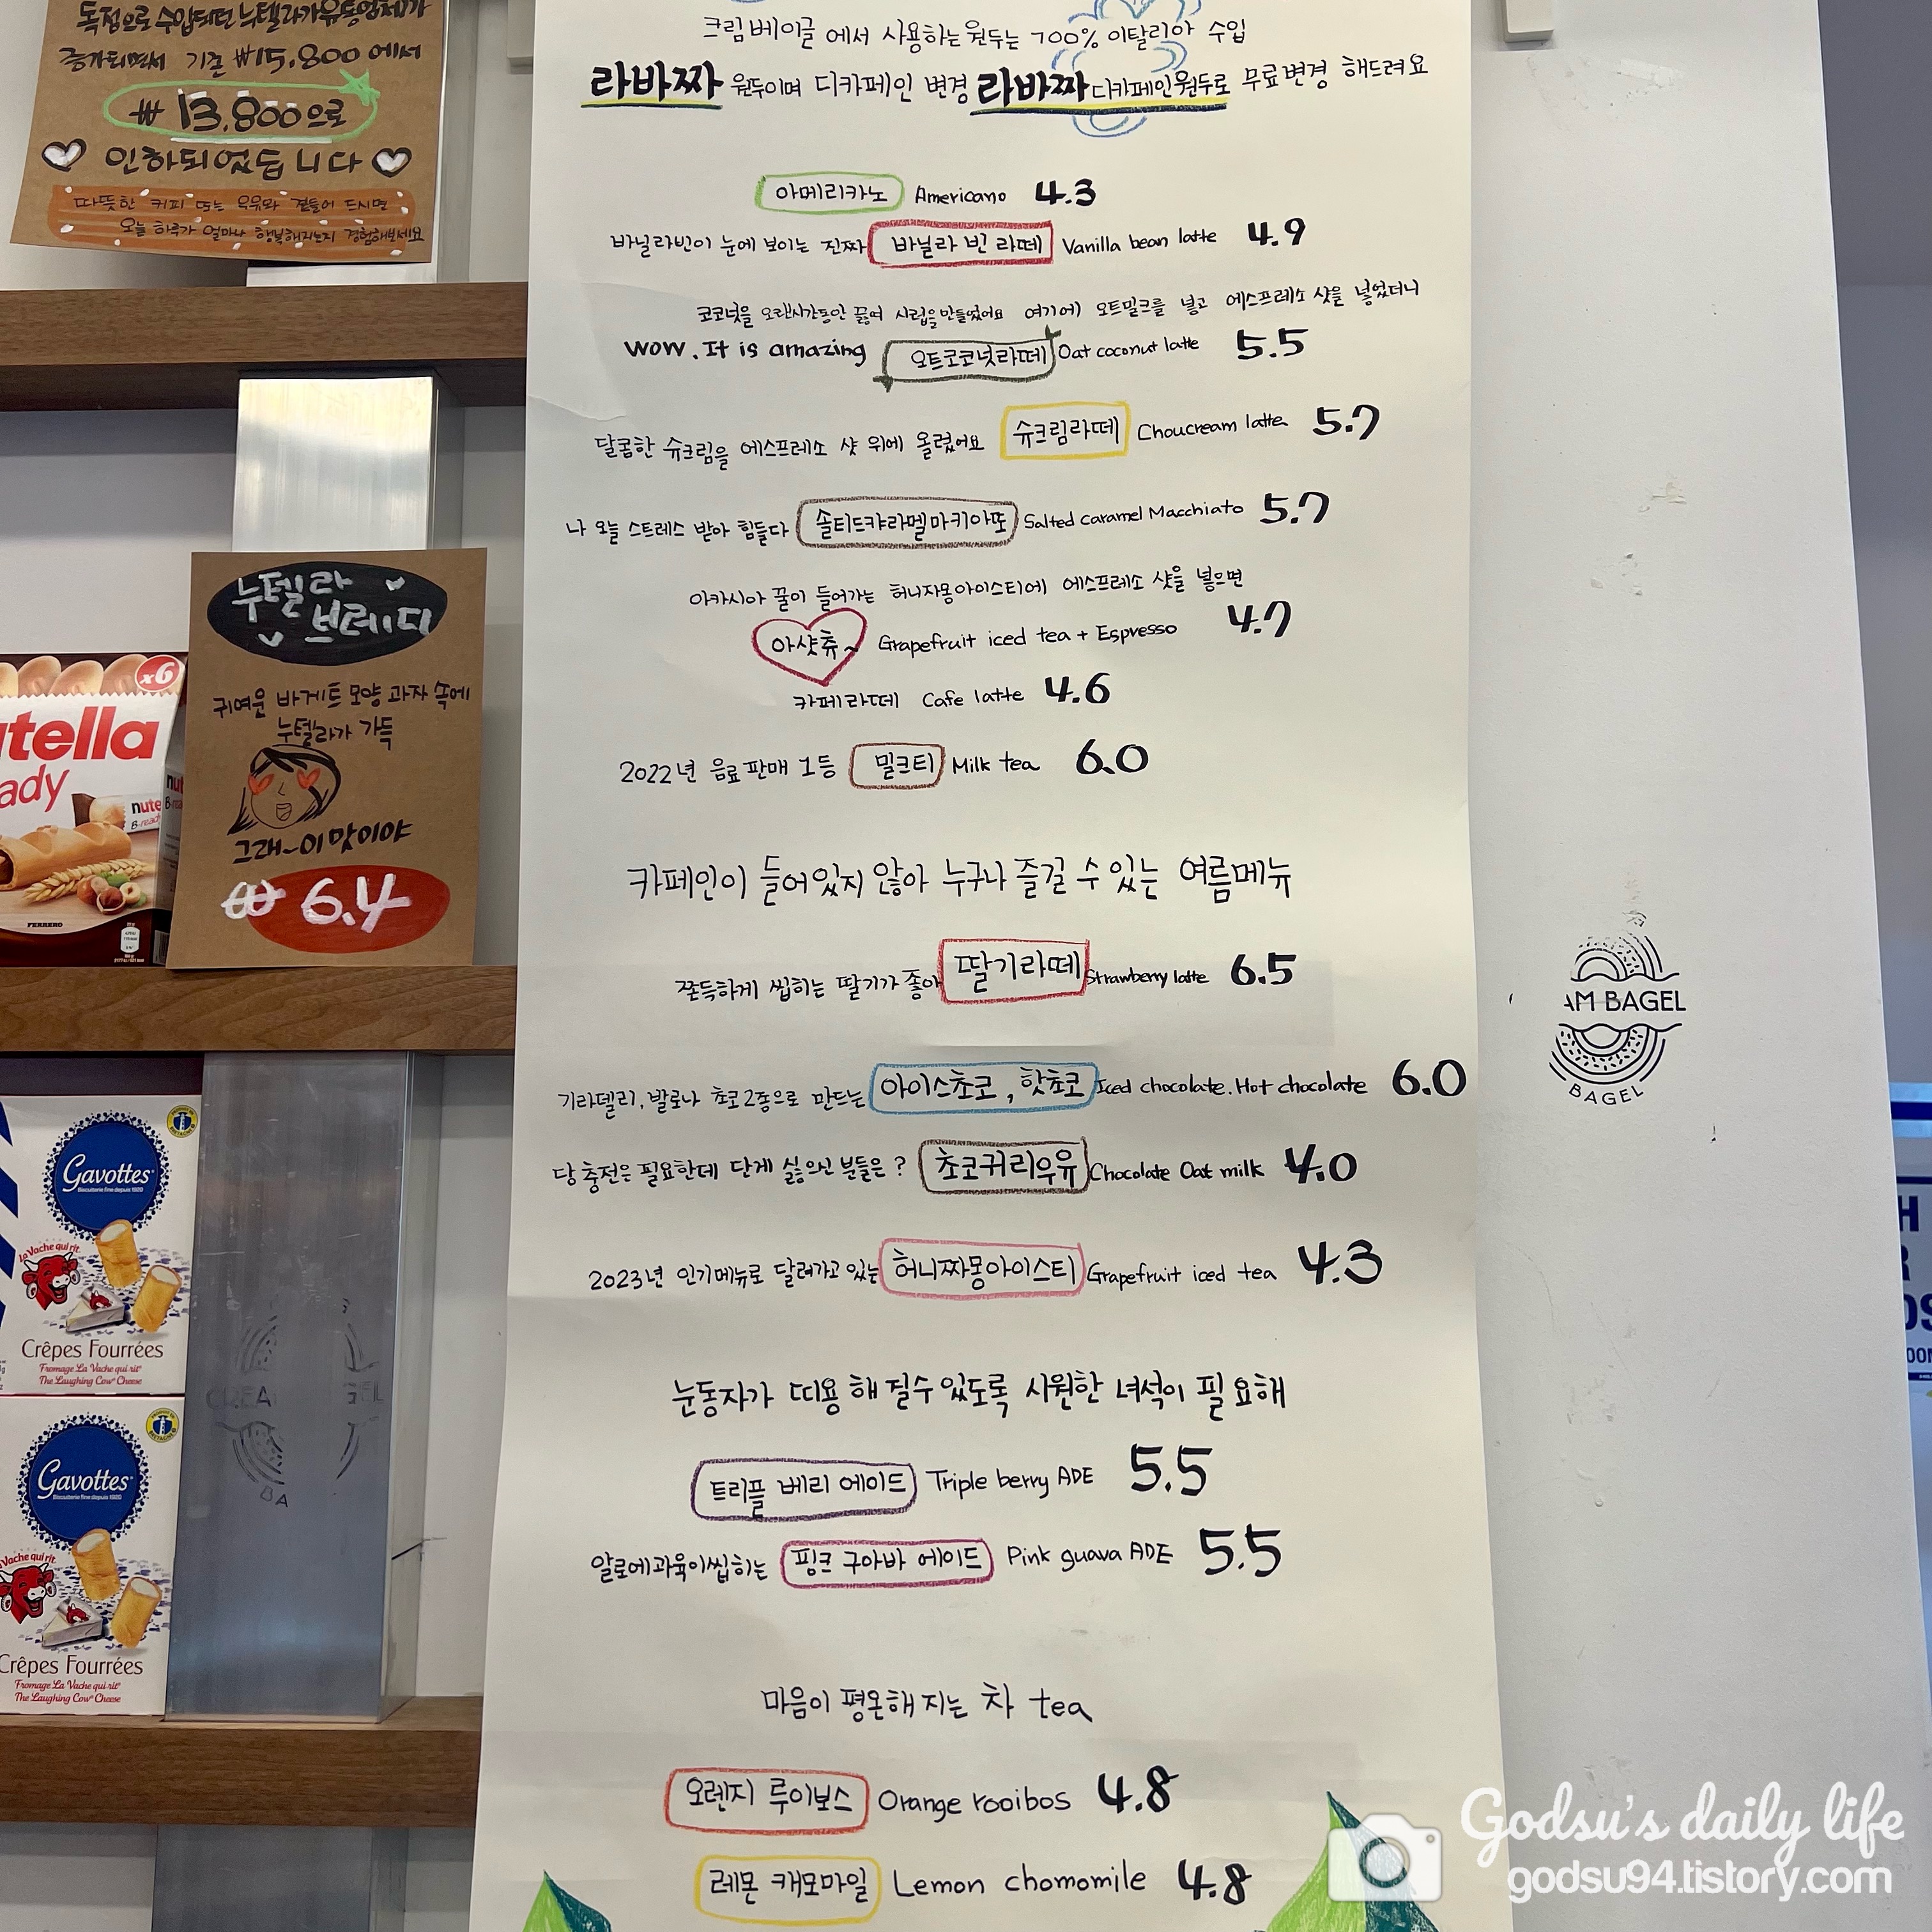 독점으로 수입되던 누텔라가 유통업체가
증가되면서 기존 ₩15,800 에서
₩ 13,800으로
인하되었습니다
따뜻한 커피 또는 우유와 곁들어 드시면
오늘 하루가 얼마나 행복해지는지 경험해보세요
누텔라
브레디
귀여운 바게트 모양 과자 속에
누텔라가 가득
그래~이 맛이야
₩ 6.4
x6
utella
ady
nute
B-ready
FERRERO
Gavottes
Biscuiterie fine depuis 1920
La Vache qui rit
Crêpes Fourrées
Fromage La Vache qui rit
The Laughing Cow Cheese
Gavottes
Biscuiterie fine depuis 1920
Vache qui rit
Crêpes Fourrées
Fromage La Vache qui rit
The Laughing Cow Cheese
크림베이글 에서 사용하는 원두는 100% 이탈리아 수입
라바짜 원두이며 디카페인 변경 라바짜 디카페인원두로 무료변경 해드려요
아메리카노 Americano 4.3
바닐라빈이 눈에 보이는 진짜 바닐라 빈 라떼 Vanilla bean latte 4.9
코코넛을 오랜시간동안 끓여 시럽을 만들었어요 여기에 오트밀크를 넣고 에스프레소 샷을 넣었더니
WOW. It is amazing 오트코코넛라떼 Oat coconut latte 5.5
달콤한 슈크림을 에스프레소 샷 위에 올렸어요 슈크림라떼 Choucream latte 5.7
나 오늘 스트레스 받아 힘들다 솔티드캬라멜마키아또 Salted caramel Macchiato 5.7
아카시아 꿀이 들어가는 허니자몽아이스티에 에스프레소 샷을 넣으면
아샷츄~ Grapefruit iced tea + Espresso 4.7
카페라떼 Cafe latte 4.6
2022년 음료 판매 1등 밀크티 Milk tea 6.0
카페인이 들어있지 않아 누구나 즐길 수 있는 여름메뉴
쫀득하게 씹히는 딸기가 좋아 딸기라떼 Strawberry latte 6.5
기라델리, 발로나 초코 2종으로 만드는 아이스초코, 핫초코 Iced chocolate. Hot chocolate 6.0
당 충전은 필요한데 단게 싫으신 분들은? 초코귀리우유 Chocolate Oat milk 4.0
2023년 인기메뉴로 달려가고 있는 허니짜몽아이스티 Grapefruit iced tea 4.3
눈동자가 띠용 해 질수 있도록 시원한 녀석이 필요해
트리플 베리 에이드 Triple berry ADE 5.5
알로에과육이씹히는 핑크 구아바 에이드 Pink guava ADE 5.5
마음이 평온해 지는 차 tea
오렌지 루이보스 Orange rooibos 4.8
레몬 캐모마일 Lemon chomomile 4.8
AM BAGEL
BAGEL
Godsu's daily life
godsu94.tistory.com